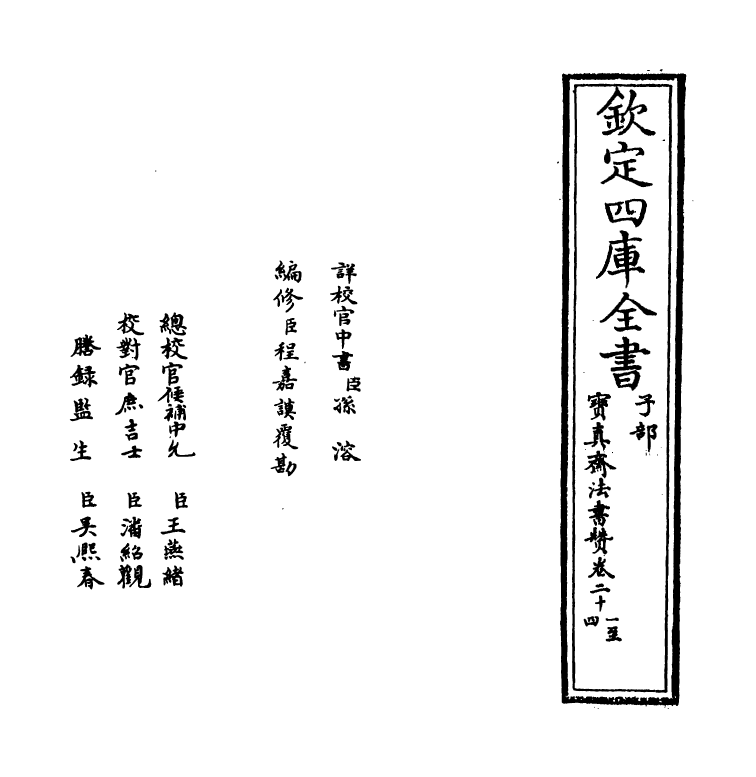 欽定四庫全書
子部
寶真齋法書贊卷二十一至
四
詳校官中書臣孫溶
編修臣程嘉謨覆勘
總校官候補中允臣王燕緒
校對官庶吉士臣潘紹觀
謄錄監生臣吳熙春